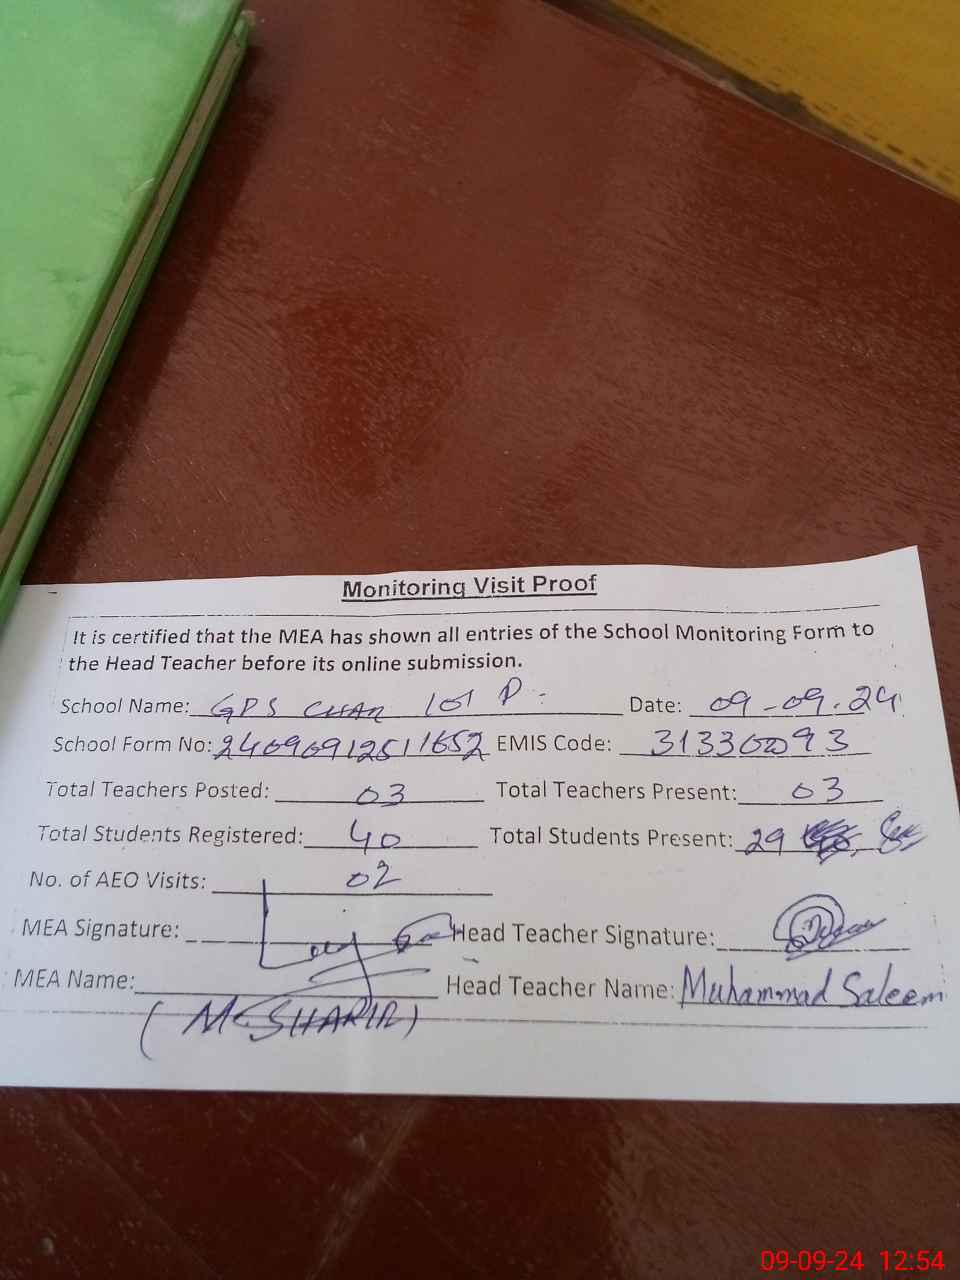 Monitoring Visit Proof
It is certified that the MEA has shown all entries of the School Monitoring Form to
the Head Teacher before its online submission.
School Name: GPS CHAK 101 P. Date: 09-09-24
School Form No: 24090912511652 EMIS Code: 31330093
Total Teachers Posted: 03 Total Teachers Present: 03
Total Students Registered: 40 Total Students Present: 29
No. of AEO Visits: 02
MEA Signature: Head Teacher Signature:
MEA Name: Head Teacher Name: Muhammad Saleem
09-09-24 12:54